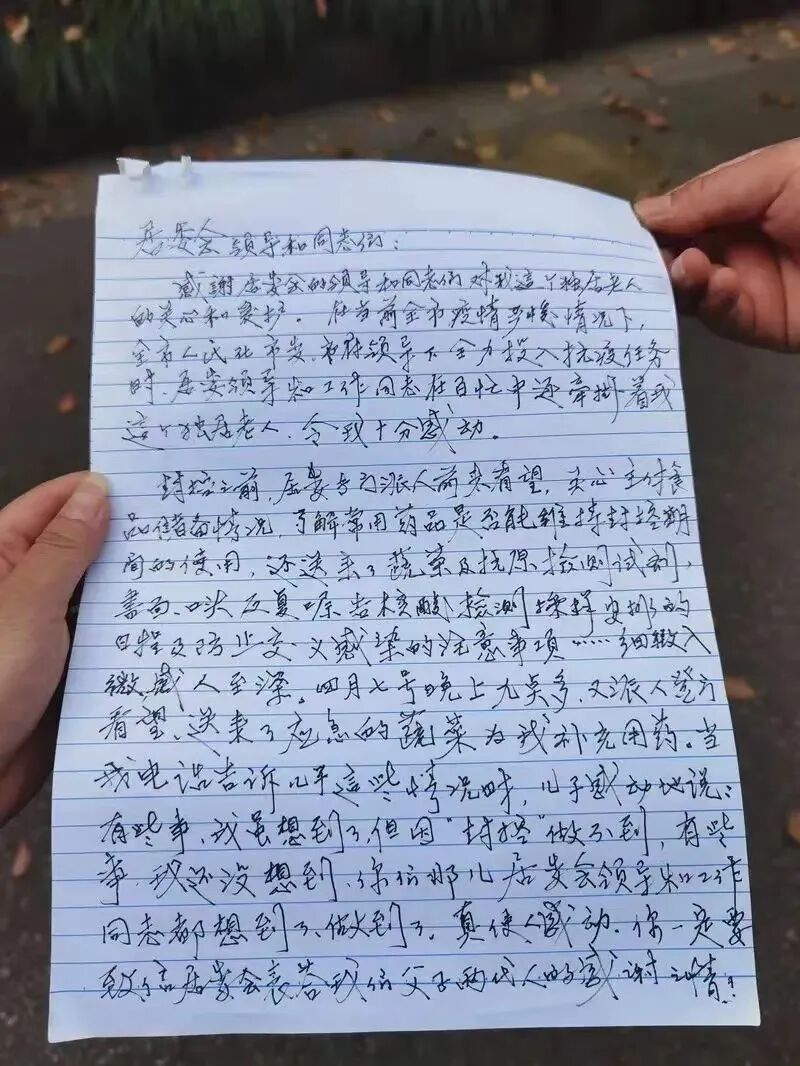 居委会领导和同志们：
感謝居委会的领导和同志们对我這个独居老人
的关心和爱护。在当前全市疫情严峻情况下，
全市人民在市委、市府领导下全力投入抗疫任务
时，居委领导和工作同志在百忙中还牵掛着我
這个独居老人，令我十分感动。
封控之前，居委专门派人前来看望，关心主付食
品储备情况，了解常用药品是否能维持封控期
间的使用，还送来了蔬菜及抗原检测试剂，
书面、口头反复嘱告核酸检测採样安排的
日程及防止交叉感染的注意事项……细致入
微，感人至深。四月七号晚上九点多，又派人登门
看望、送来了应急的蔬菜为我补充用药。当
我电话告诉儿子這些情况时，儿子感动地说：
有些事，我虽想到了，但因"封控"做不到，有些
事，我还没想到，你们那儿居委会领导和工作
同志都想到了、做到了。真使人感动，你一定要
致信居委会表答我们父子两代人的感谢之情！